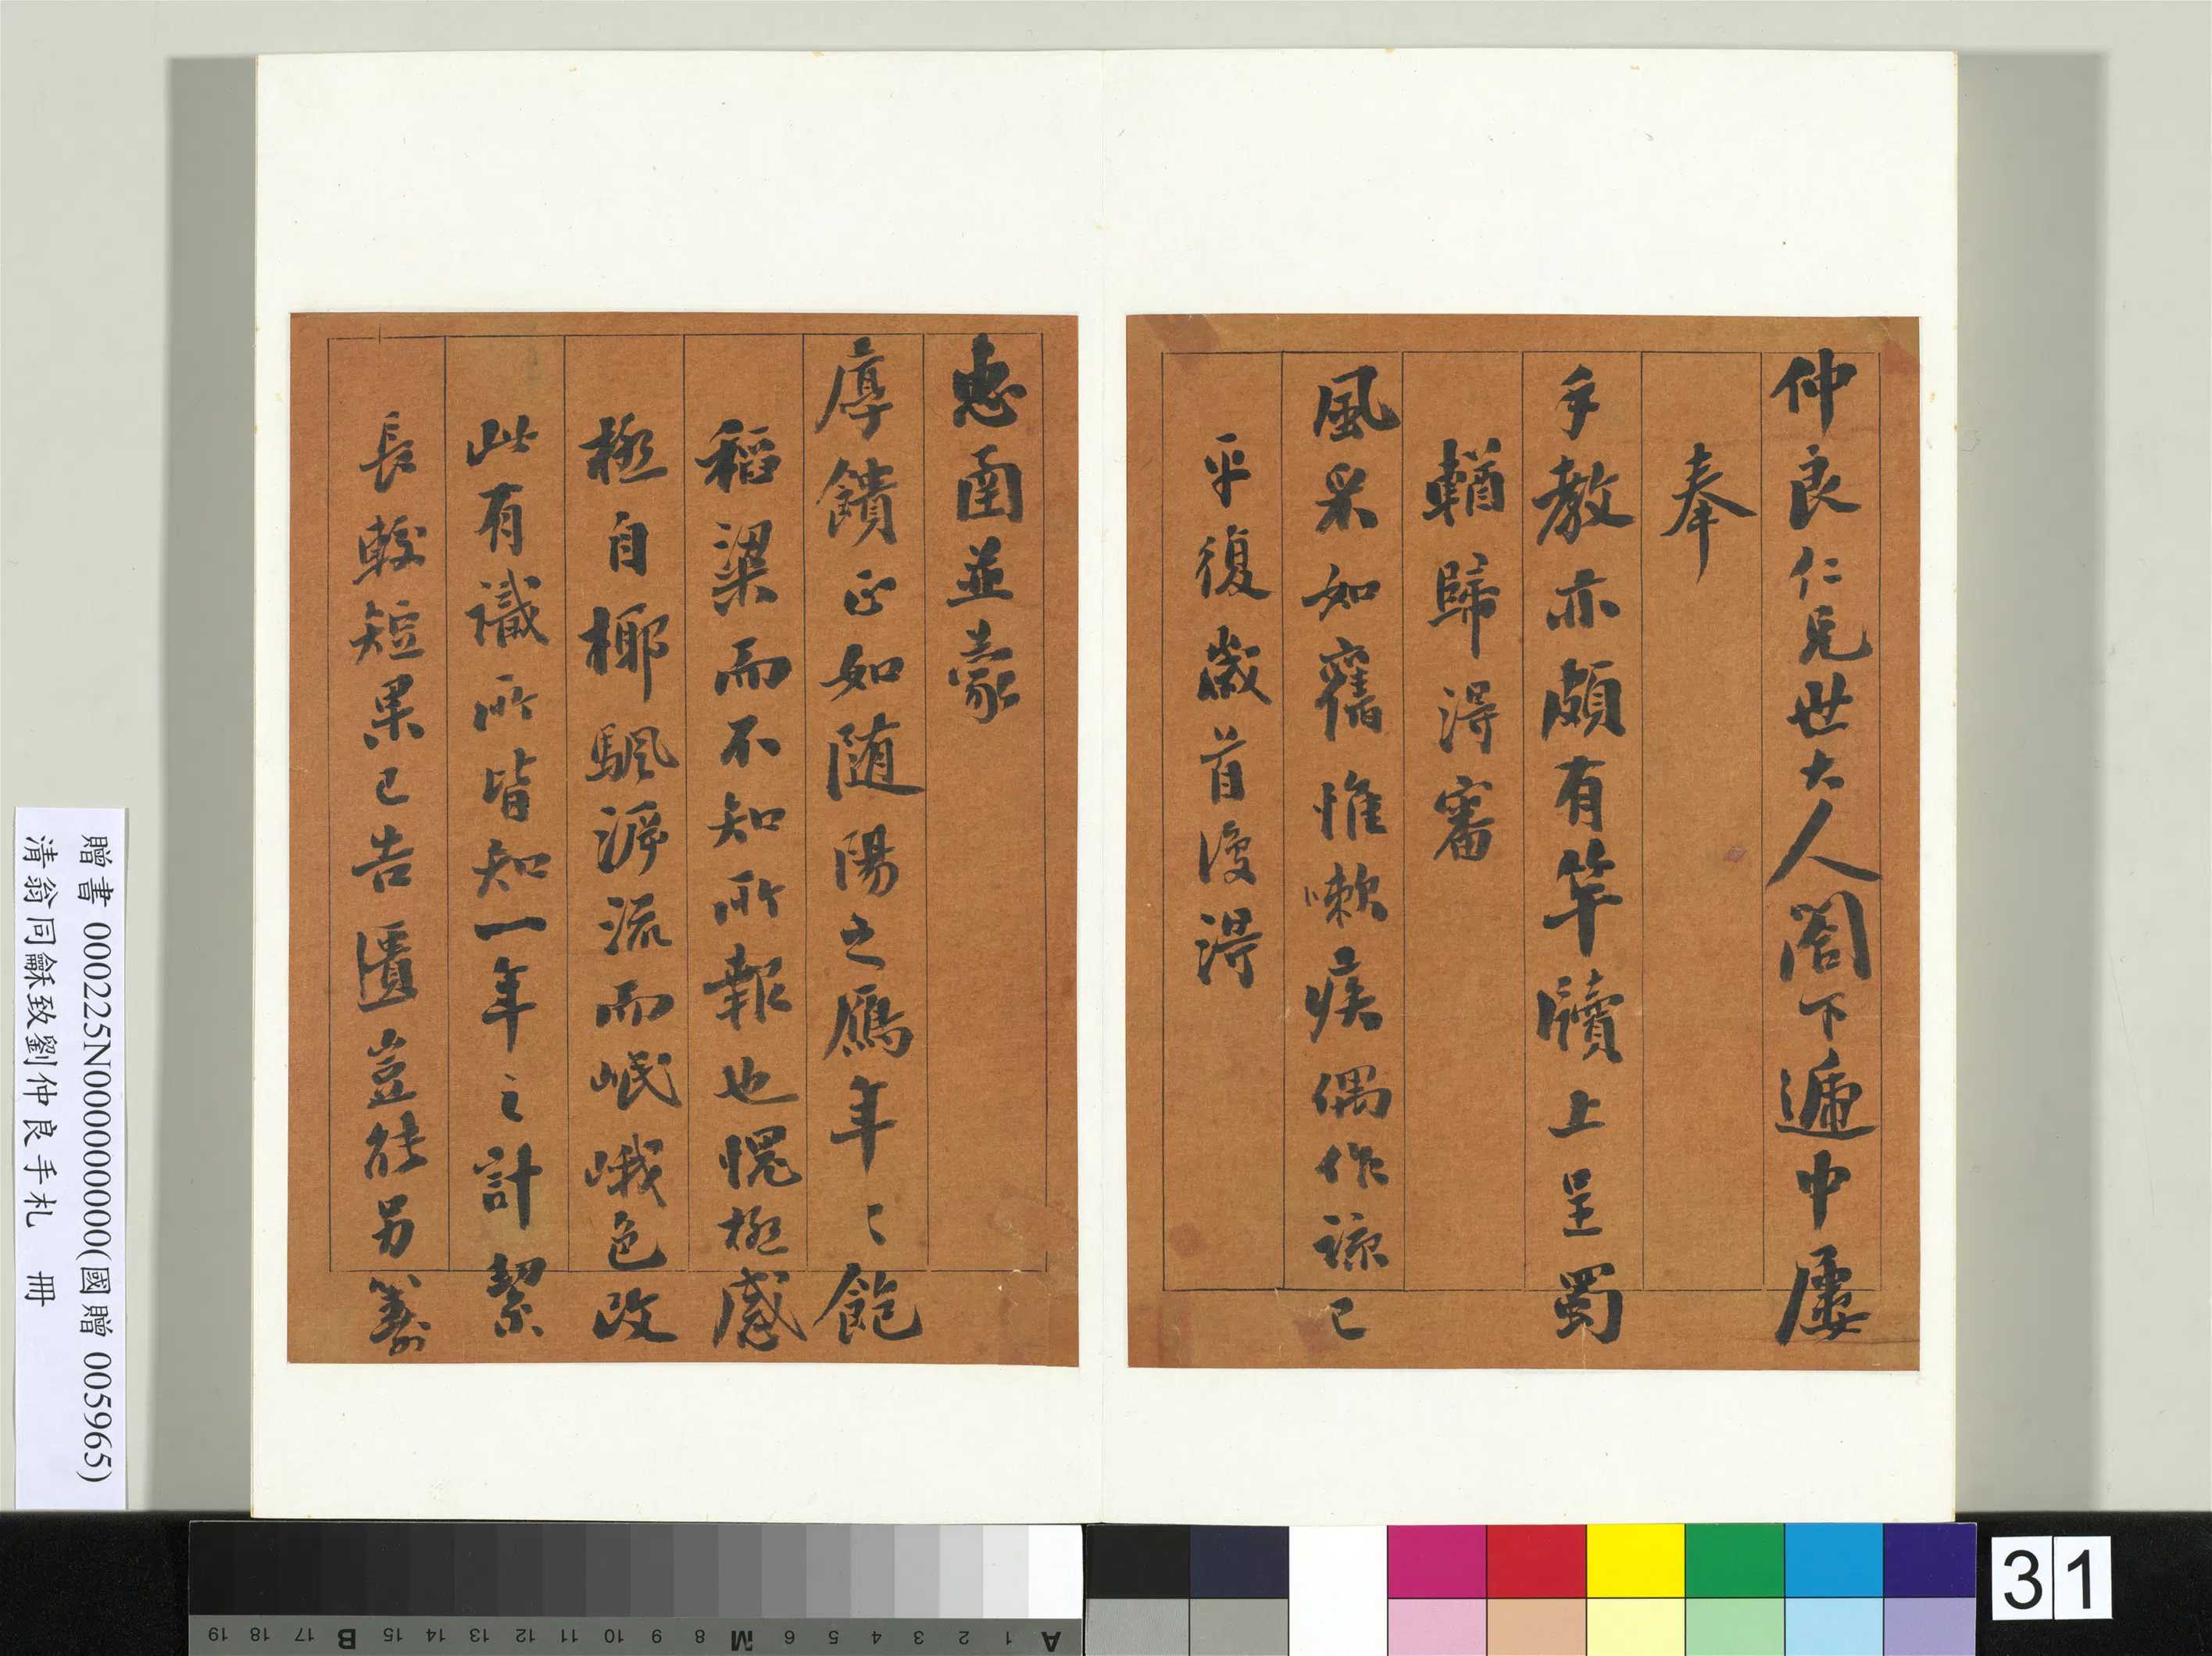 仲良仁兄世大人閣下遞中屢
奉
手教亦頗有竿牘上呈蜀
輶歸得審
風采如舊惟嗽疾偶作諒已
平復歲首復得
惠函並蒙
厚饋正如随陽之鴈年〻飽
稻粱而不知所報也愧極感
極自椰颿游流而岷峨色改
此有識所皆知一年之計絜
長較短果已告匱豈能另籌
贈書 000225N000000000(國贈 005965)
清翁同龢致劉仲良手札 冊
A 1 2 3 4 5 6 M 8 9 10 11 12 13 14 15 B 17 18 19
31